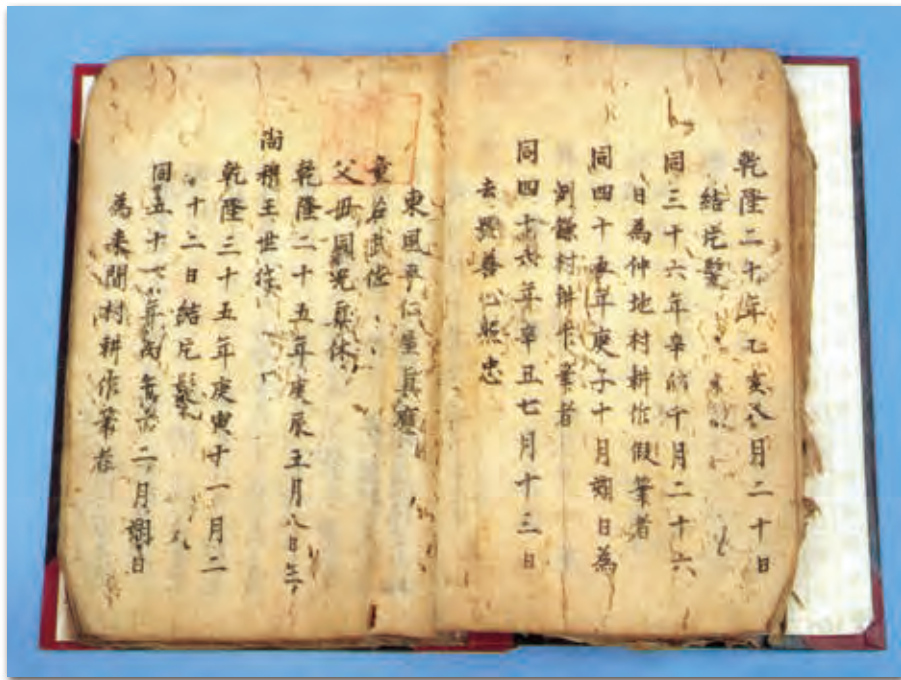 乾隆二十年乙亥八月二十日
結片髪
同三十六年辛卯十月二十六
日為仲地村耕作假筆者
同四十五年庚子十月朔日為
鎌村耕作筆者
同四十六年辛丑七月十三日
去 號善心照忠
東風平仁屋真
童名武佐
父母同兄真休
乾隆二十五年庚辰五月八日生
尚穆王世
乾隆三十五年庚寅十一月二
十二日結片髪
同五十一年丙午 二月朔日
為来間村耕作筆者